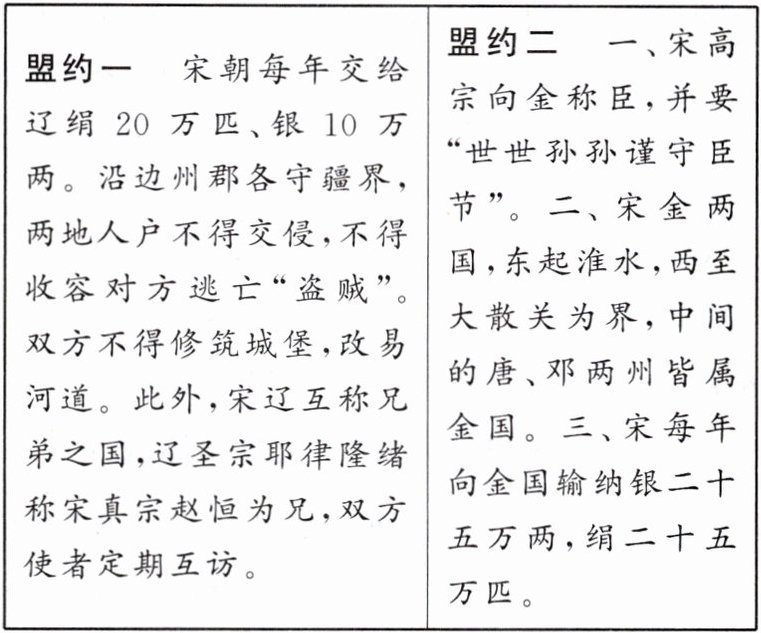 盟约一 宋朝每年交给
辽绢 20 万匹、银 10 万
两。沿边州郡各守疆界，
两地人户不得交侵，不得
收容对方逃亡“盗贼”。
双方不得修筑城堡，改易
河道。此外，宋辽互称兄
弟之国，辽圣宗耶律隆绪
称宋真宗赵恒为兄，双方
使者定期互访。
盟约二 一、宋高
宗向金称臣，并要
“世世孙孙谨守臣
节”。二、宋金两
国，东起淮水，西至
大散关为界，中间
的唐、邓两州皆属
金国。三、宋每年
向金国输纳银二十
五万两，绢二十五
万匹。